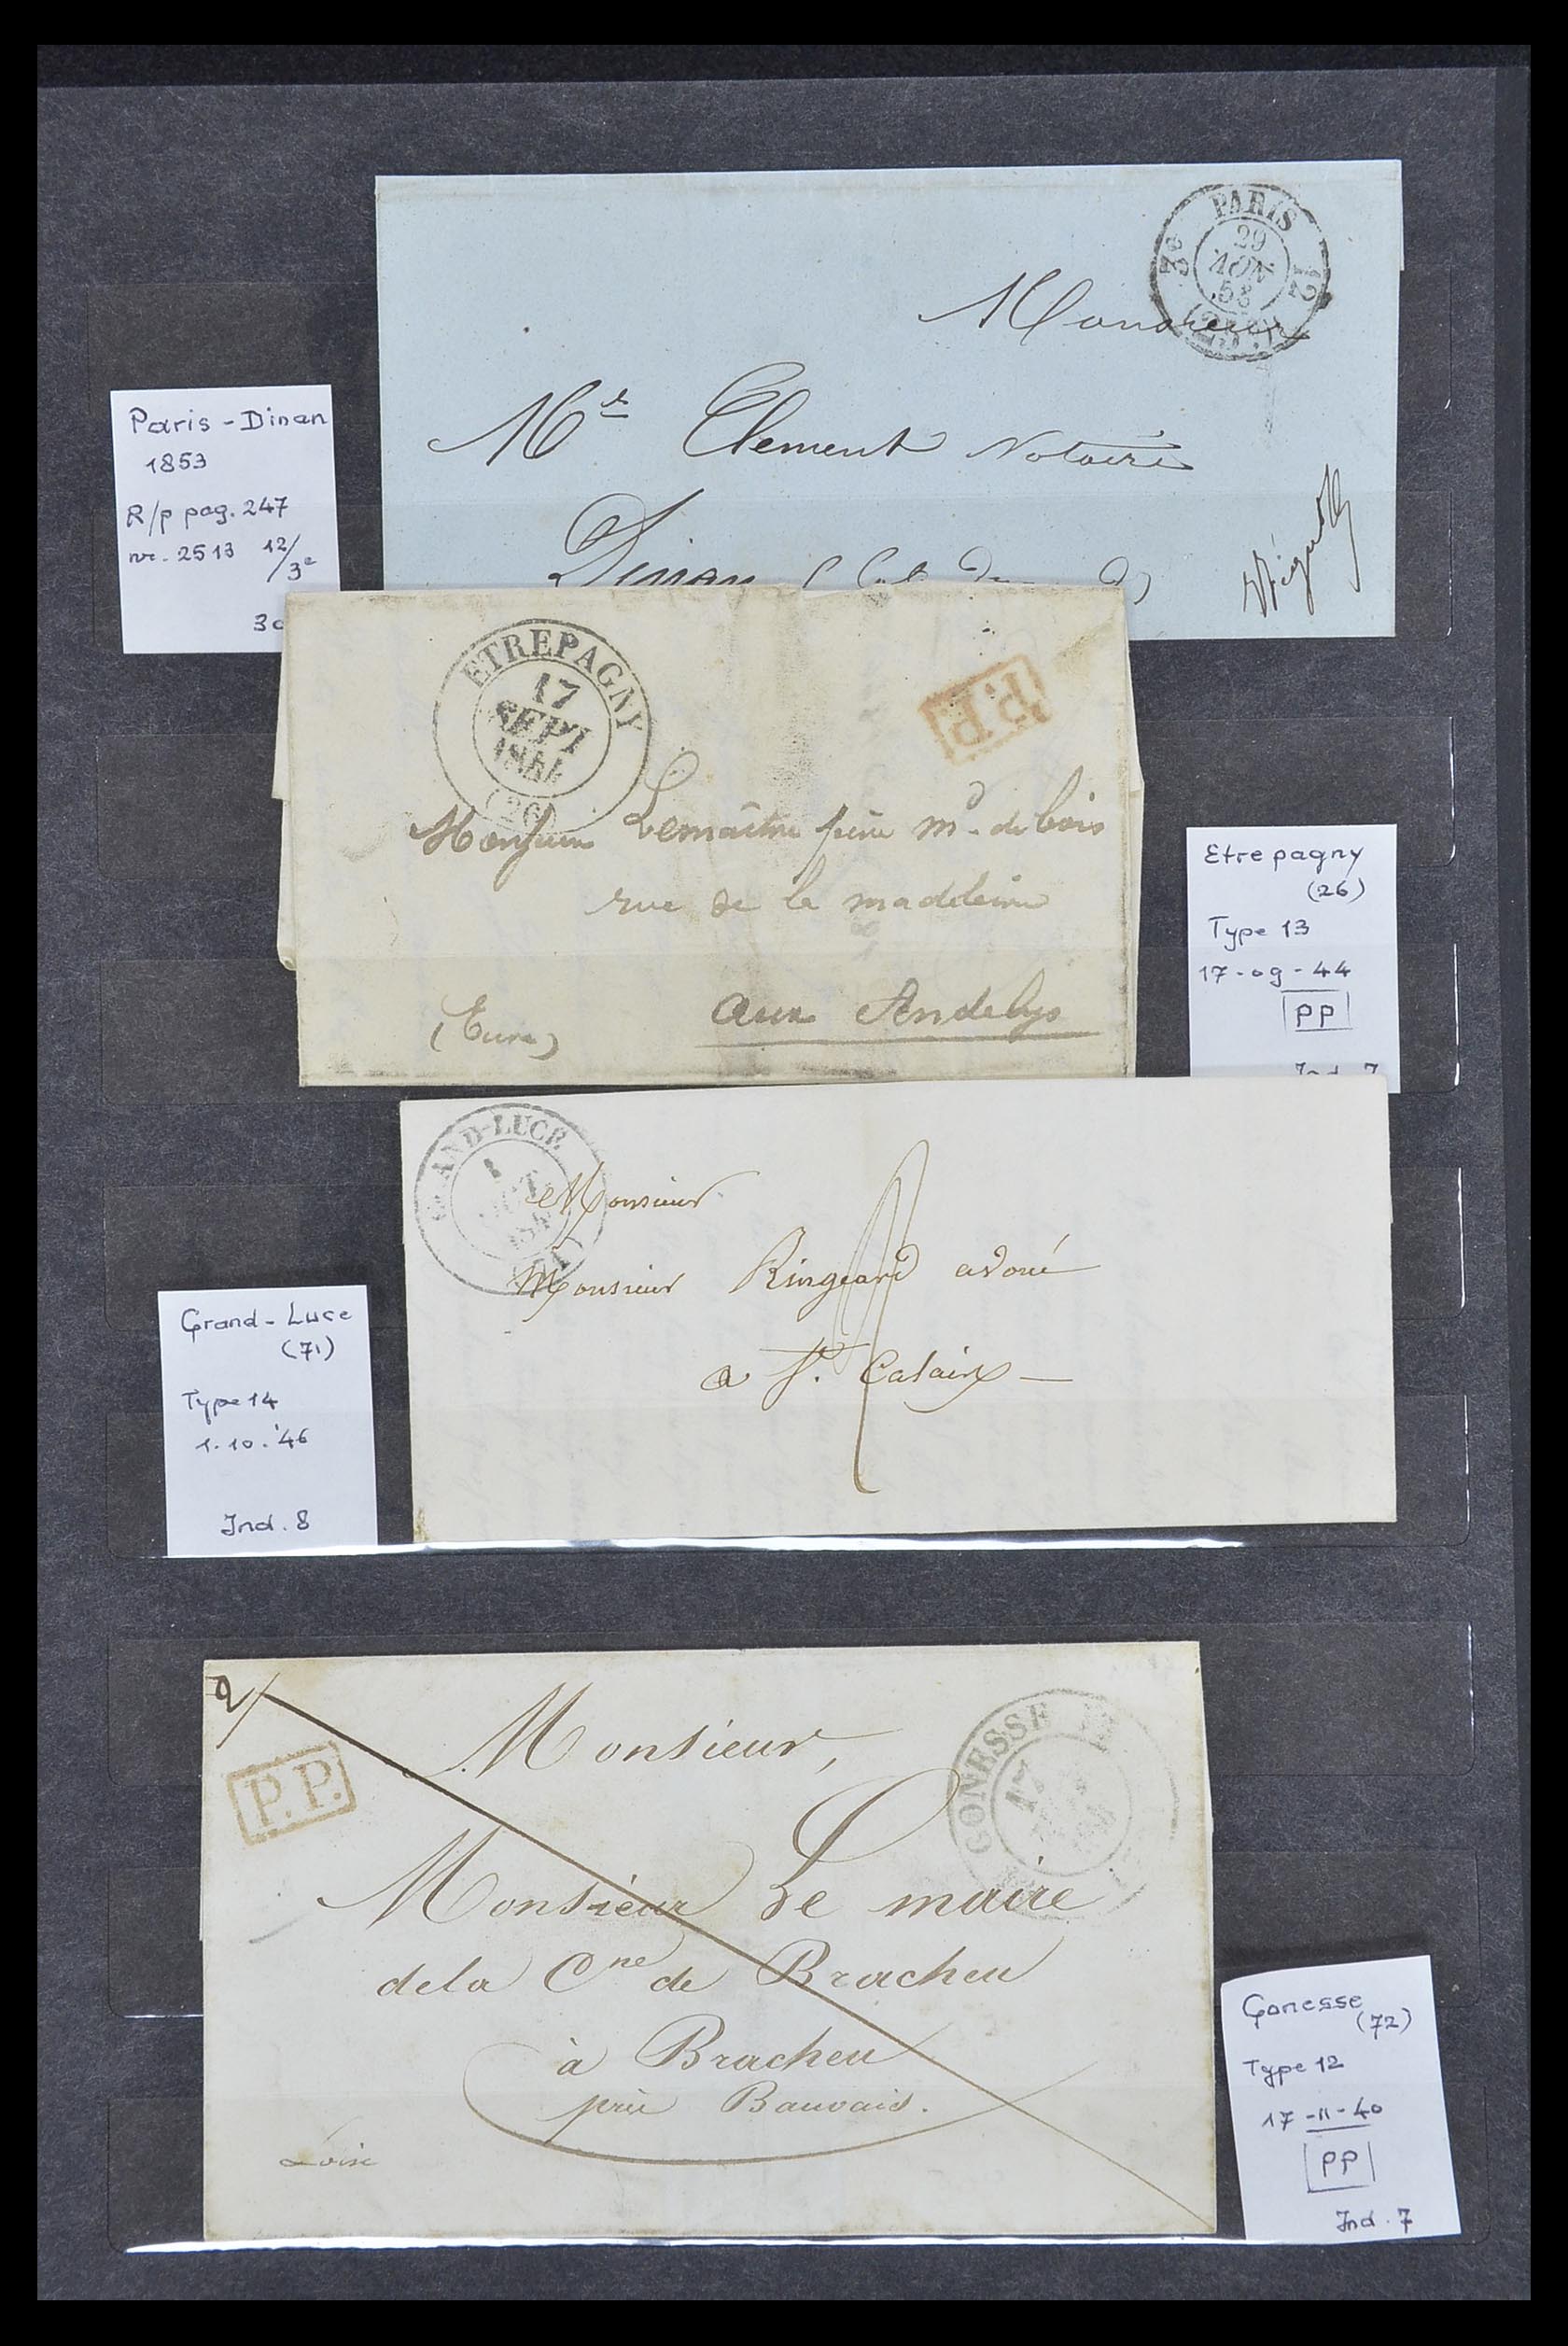 PARIS
29
NOV
53
3e
12
Monsieur
Me Clement Notaire
Dinan
Paris - Dinan
1853
R/p pag. 247
nr. 2513 12/3e
ETREPAGNY
17
SEPT
1844
(26)
P.P.
Monsieur Lemaître père md de bois
rue de la madeleine
aux Andelys
(Eure)
Etrepagny
(26)
Type 13
17-09-44
PP
Ind. 7
GRAND-LUCE
Monsieur
Monsieur Ringeard avoué
a St. Calais
Grand-Luce
(71)
Type 14
1.10.'46
Ind. 8
P.P.
GONESSE
17
Monsieur,
Monsieur Le maire
de la Cne de Bracheu
à Bracheu
près Bauvais.
Loise
Gonesse
(72)
Type 12
17-11-40
PP
Ind. 7